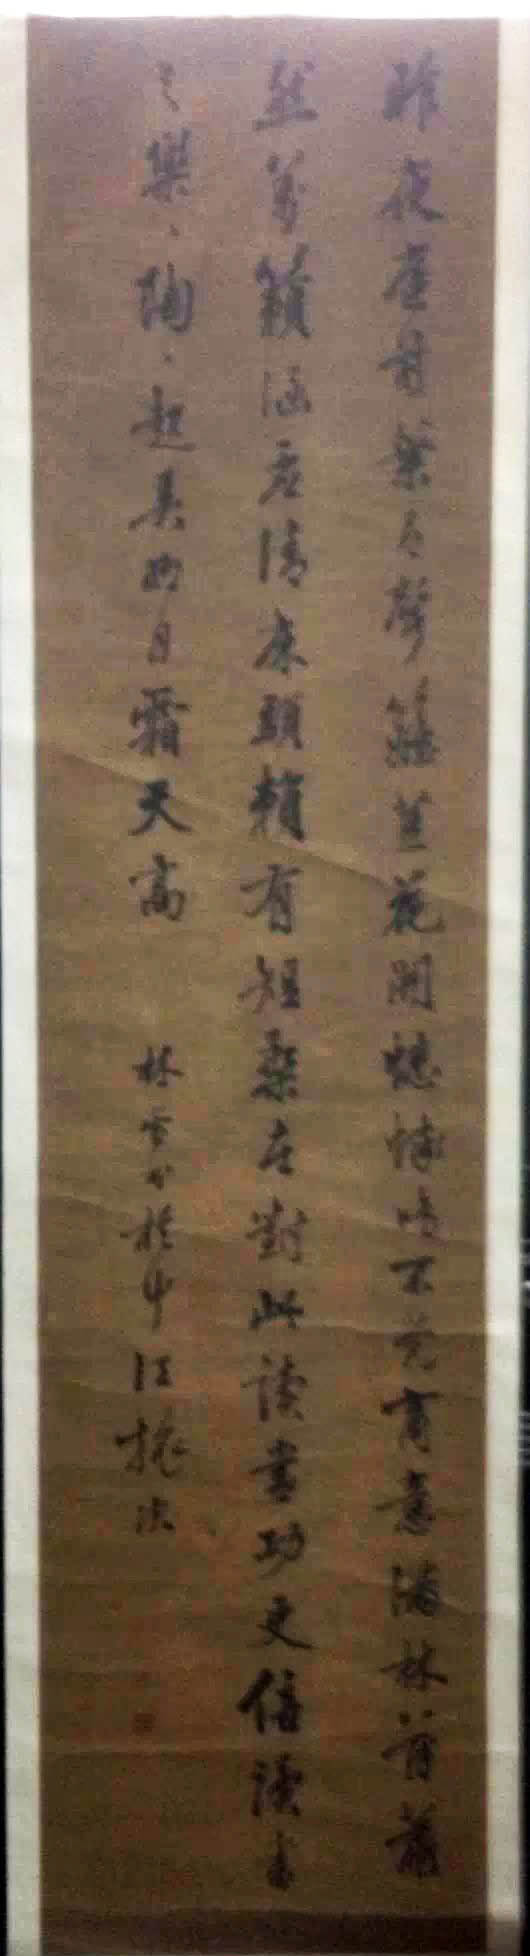 昨夜庭前葉有聲籬豆花開蟋蟀鳴不覺商意滿林薄蕭
然萬籟涵虛清床頭賴有短檠在對此讀書功更倍讀書
之樂、陶、起弄明月霜天高
林雪書於中江